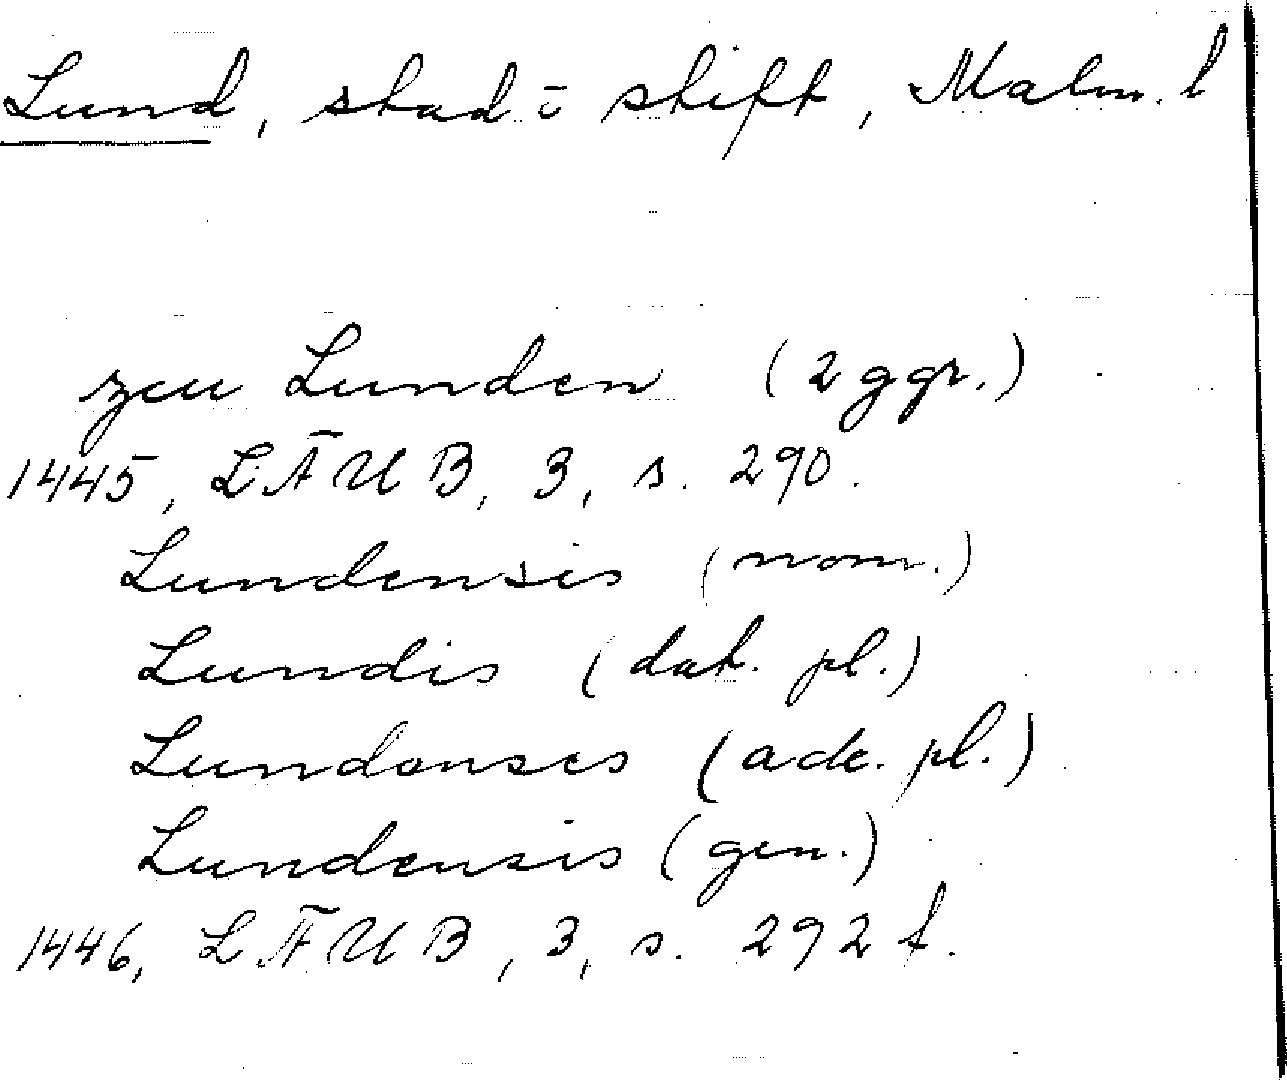 Lund, stad o stift, Malm. l
zcu Lunden (2 ggr.)
1445, LÄUB, 3, s. 290.
Lundensis (nom.)
Lundis (dat. pl.)
Lundenses (ack. pl.)
Lundensis (gen.)
1446, LÄUB, 3, s. 292 f.